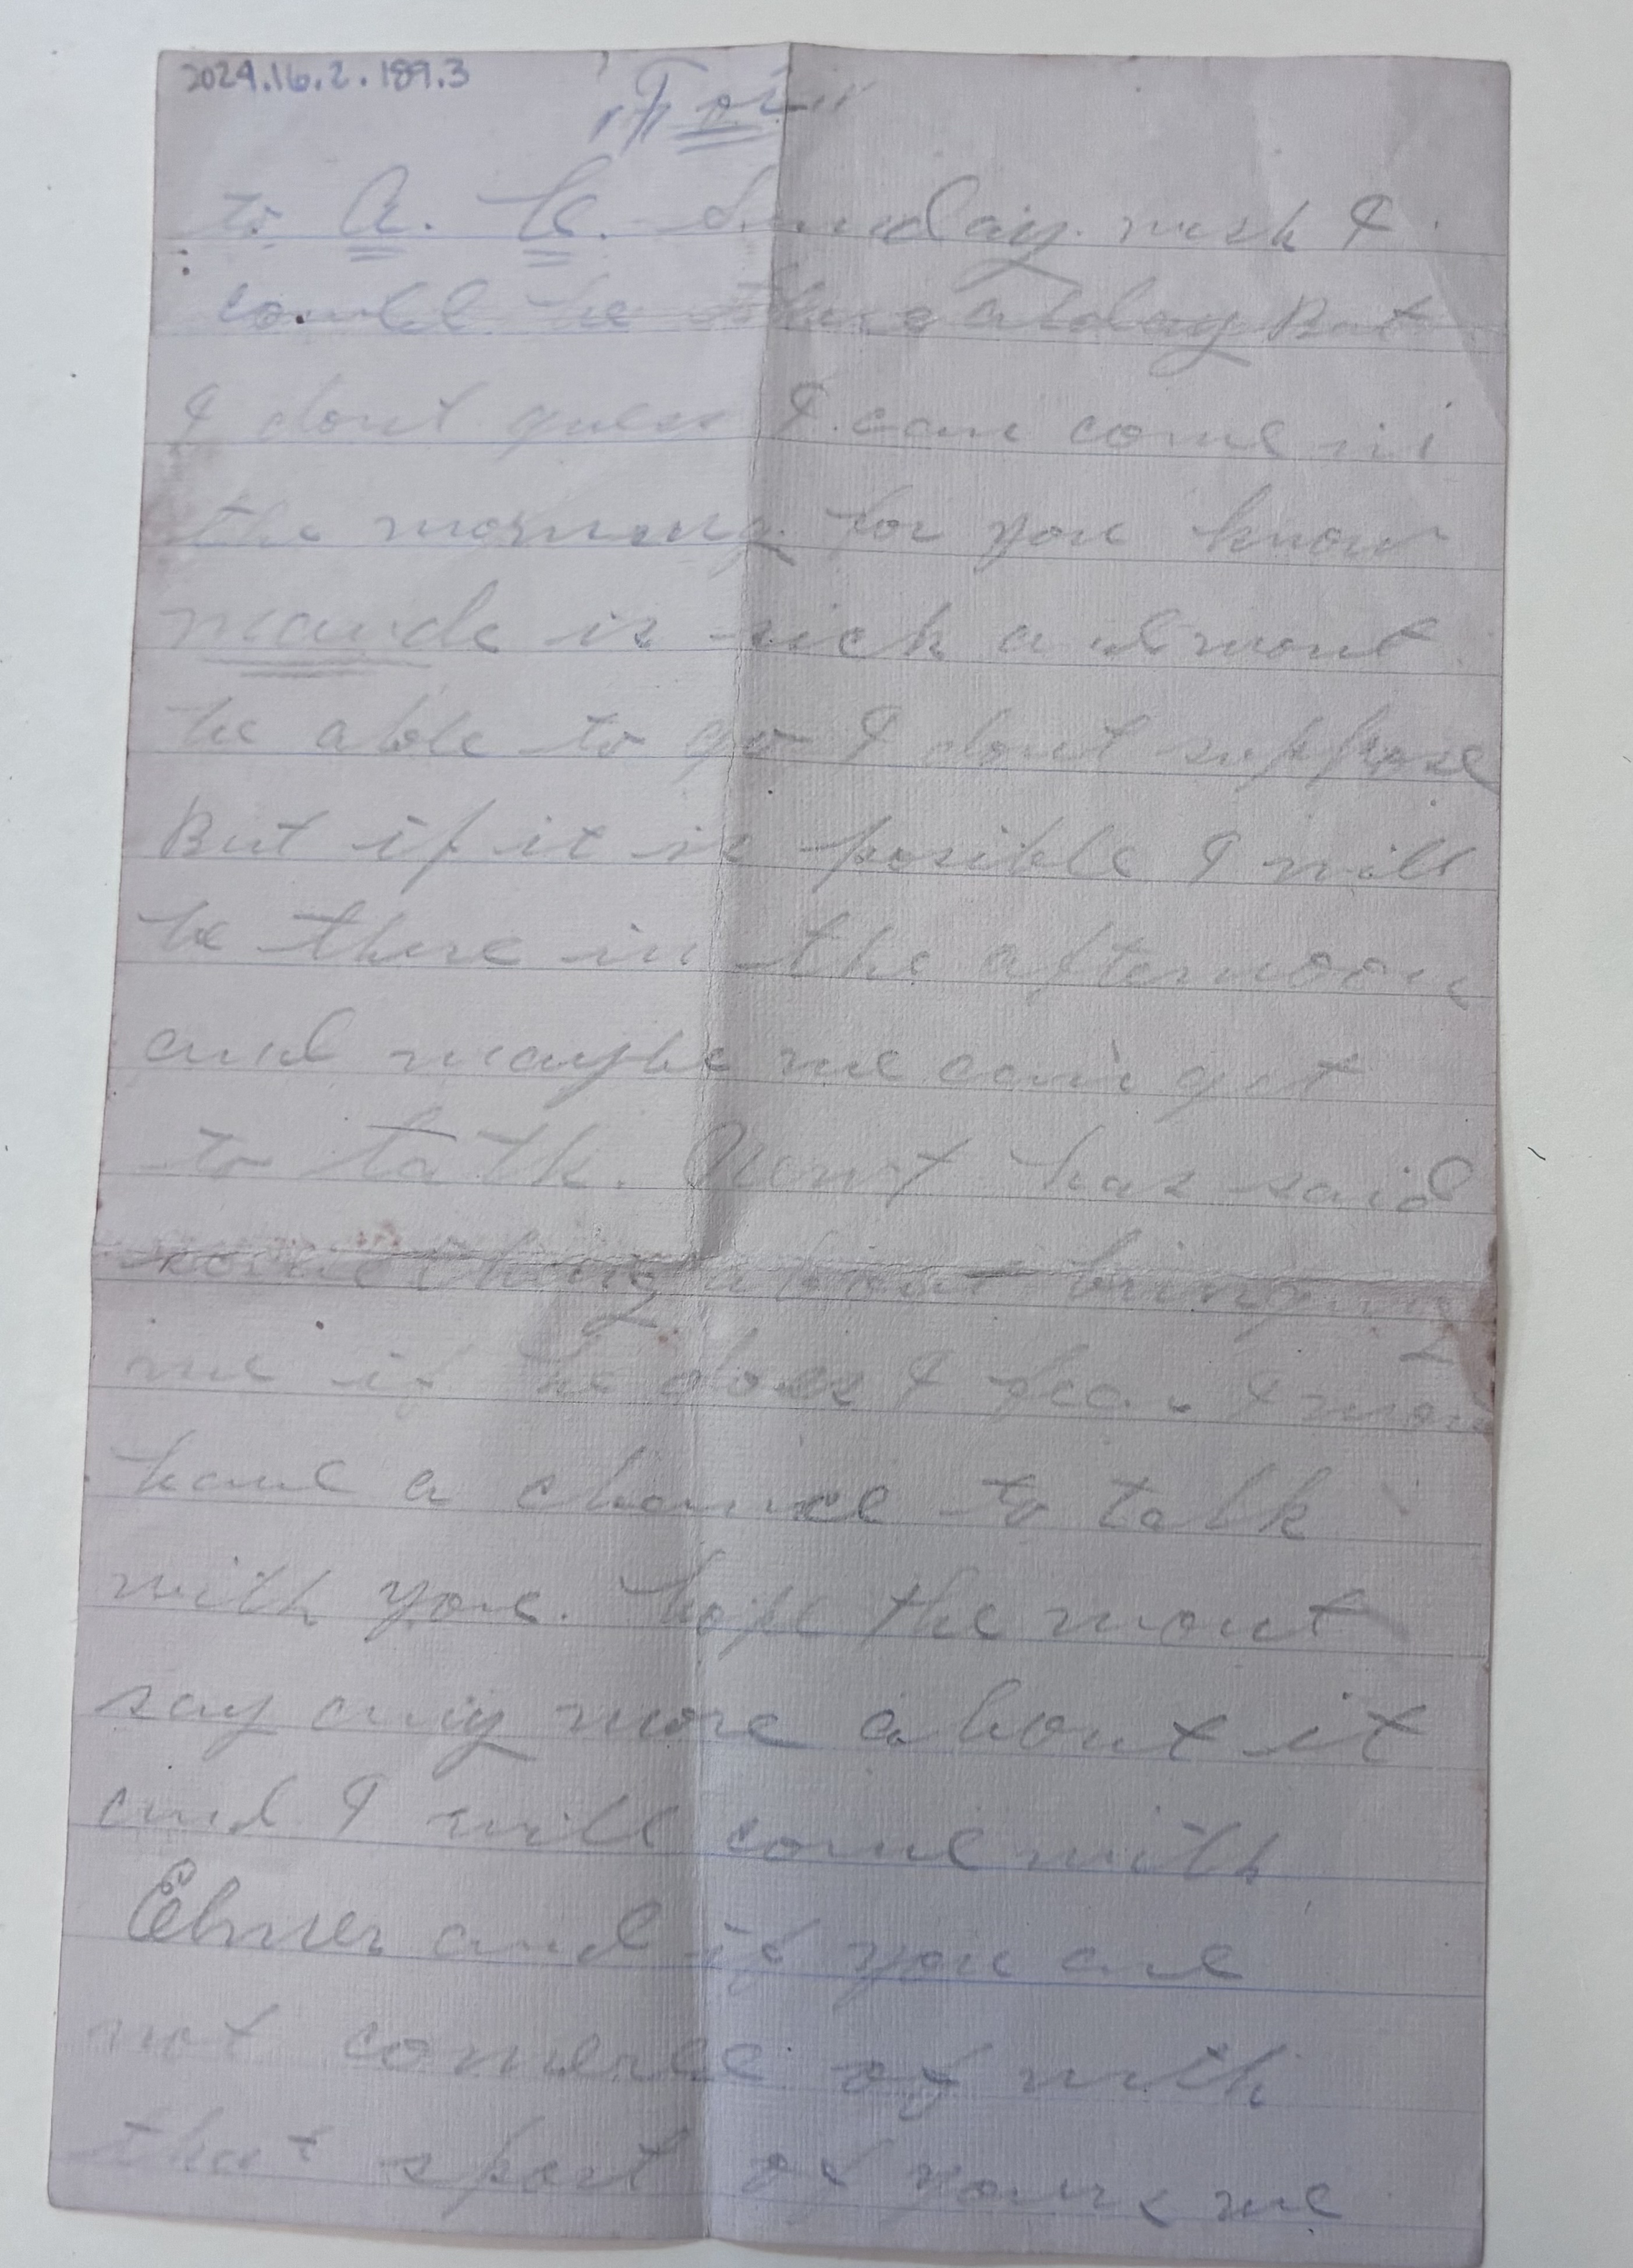 2024.16.2.189.3
"For"
to A. C. Sunday. wish I
could be there alday But
I dont guess I can come in
the morning. for you know
maude is sick a wont
be able to go I dont suppose
But if it is posible I will
be there in the afternoon
and maybe we can get
to talk. has said
something about bringing
me if he does I fear I
have a chance to talk
with you. hope the wont
say any more about it
and I will come with
Elmer and if you are
not of with
that sport of yours we